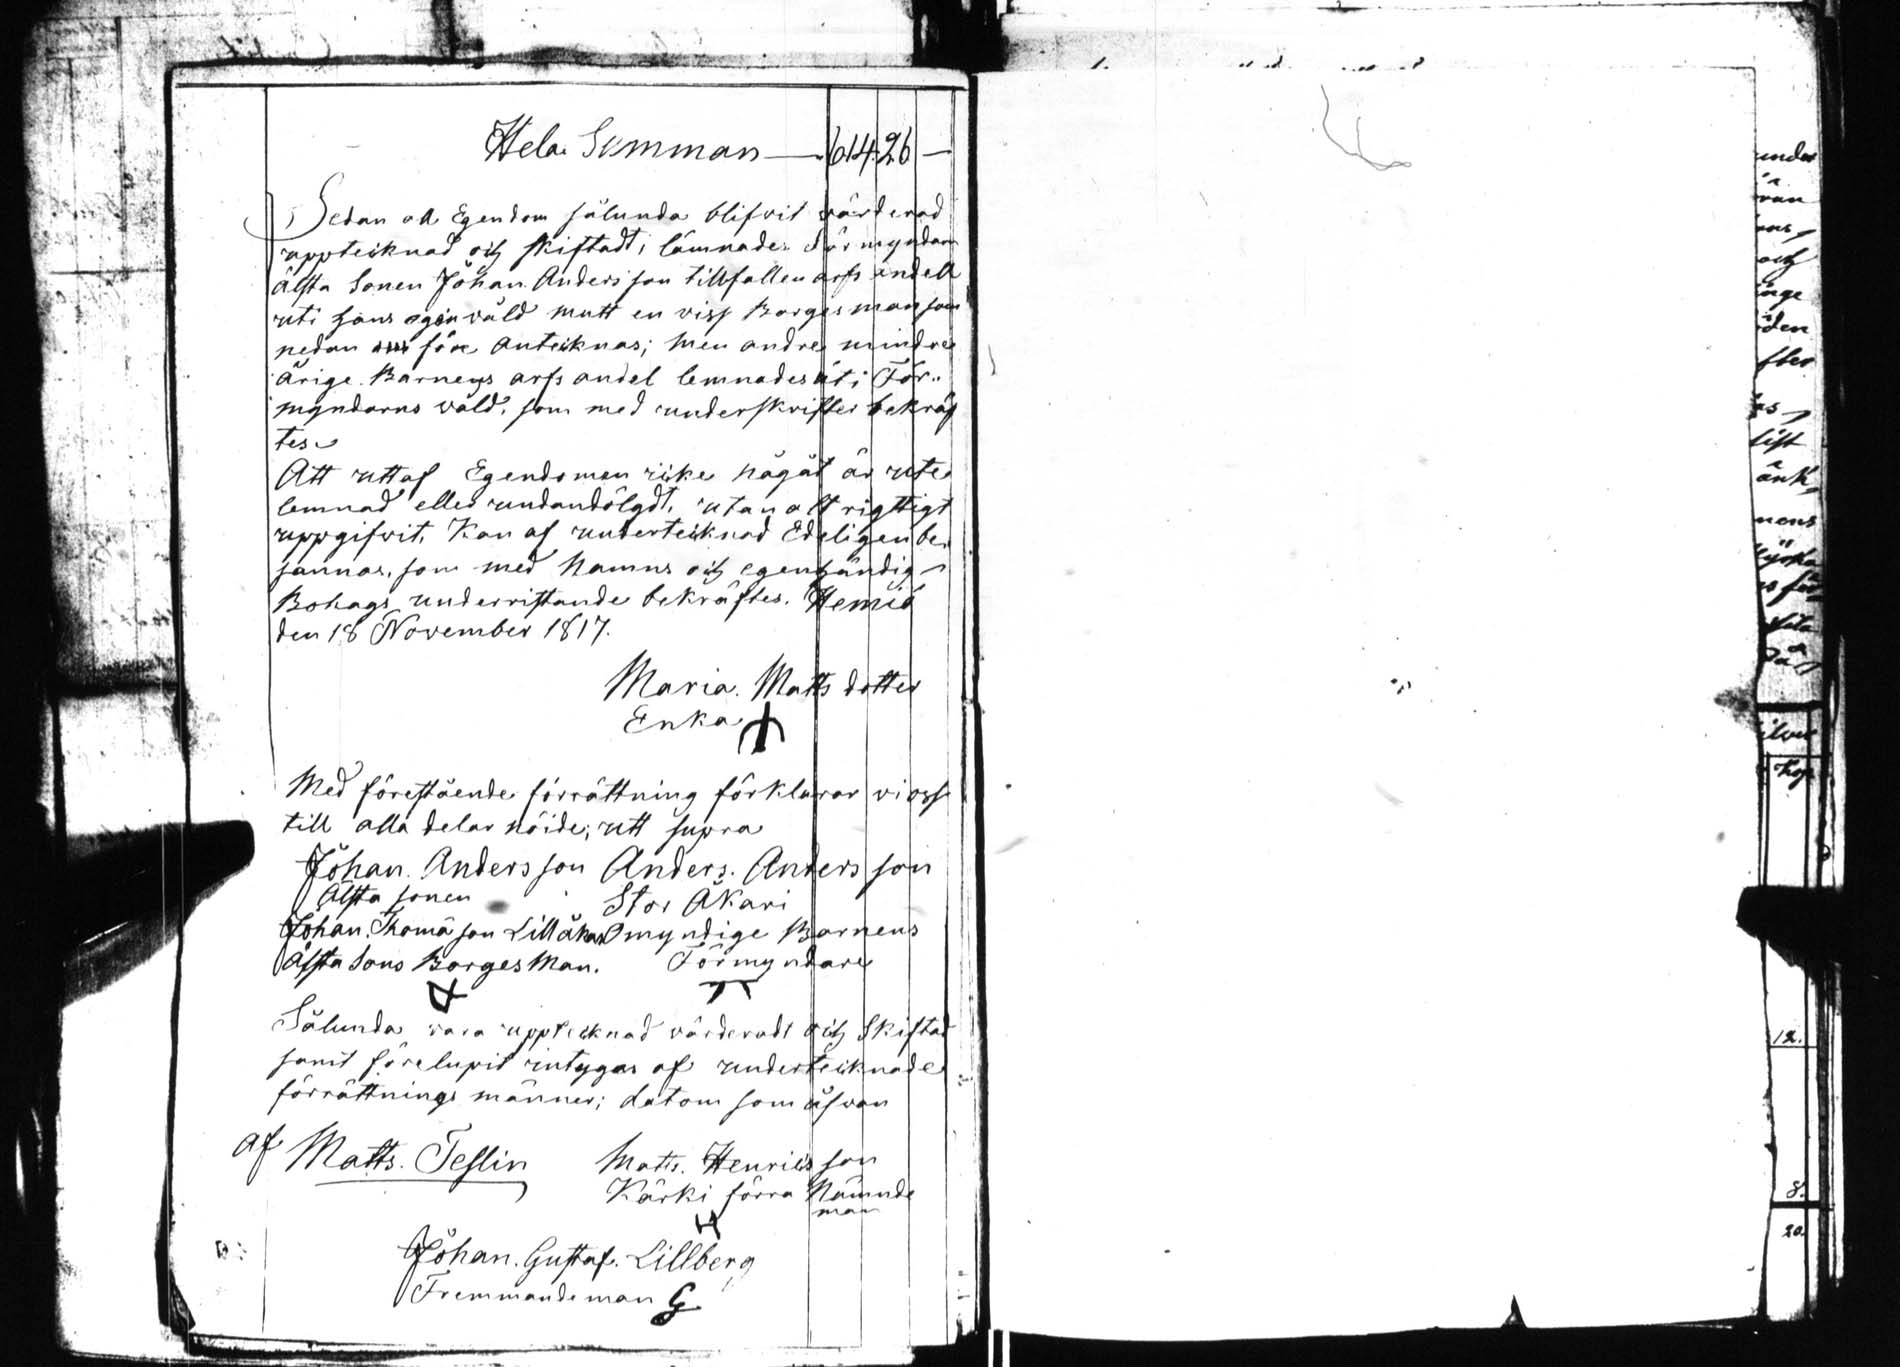 Hela Summan — 614 26 —
Sedan all Egendom sålunda blifvit värderad
uppteiknad och skiftadt, lämnades Förmyndare
älsta Sonen Jöhan Andersson tillfallen arfs andell
uti hans egen våld mutt en viss Borgesman som
nedan före anteiknas; men andre mindre
årige Barnens arfs andel lemnades uti För-
myndarns våld, som med underskrifter bekräf
tes
Att uttaf Egendomen icke någåt är ute
lemnad eller undandölgdt, utan alt rigttigt
uppgifvit, Kan af underteiknad Edeligen be
sannas, som med Namns och egenhändig
Bohags underristande bekräftes. Hemiö
den 18 November 1817.
Maria Matts dotter
Enka
Med förestäende förrättning förklarar vi oss
till alla delar nöide, utt supra
Jöhan Andersson Anders Andersson
Älsta sonen Stor Äkari
Jöhan Thomä son Lill äkar Omyndige Barnens
Älsta Sons Borges Man. Förmyndare
Sålunda vara uppteiknad värderadt och Skiftad
samt förelupit intygas af underteiknade
förrättnings männer; datom som åfvan
af Matts Teslin Matts Henriksson
Kärki förra Nämnde
man
Jöhan Gustaf Lillberg
Fremmande man G
12.
8.
20.